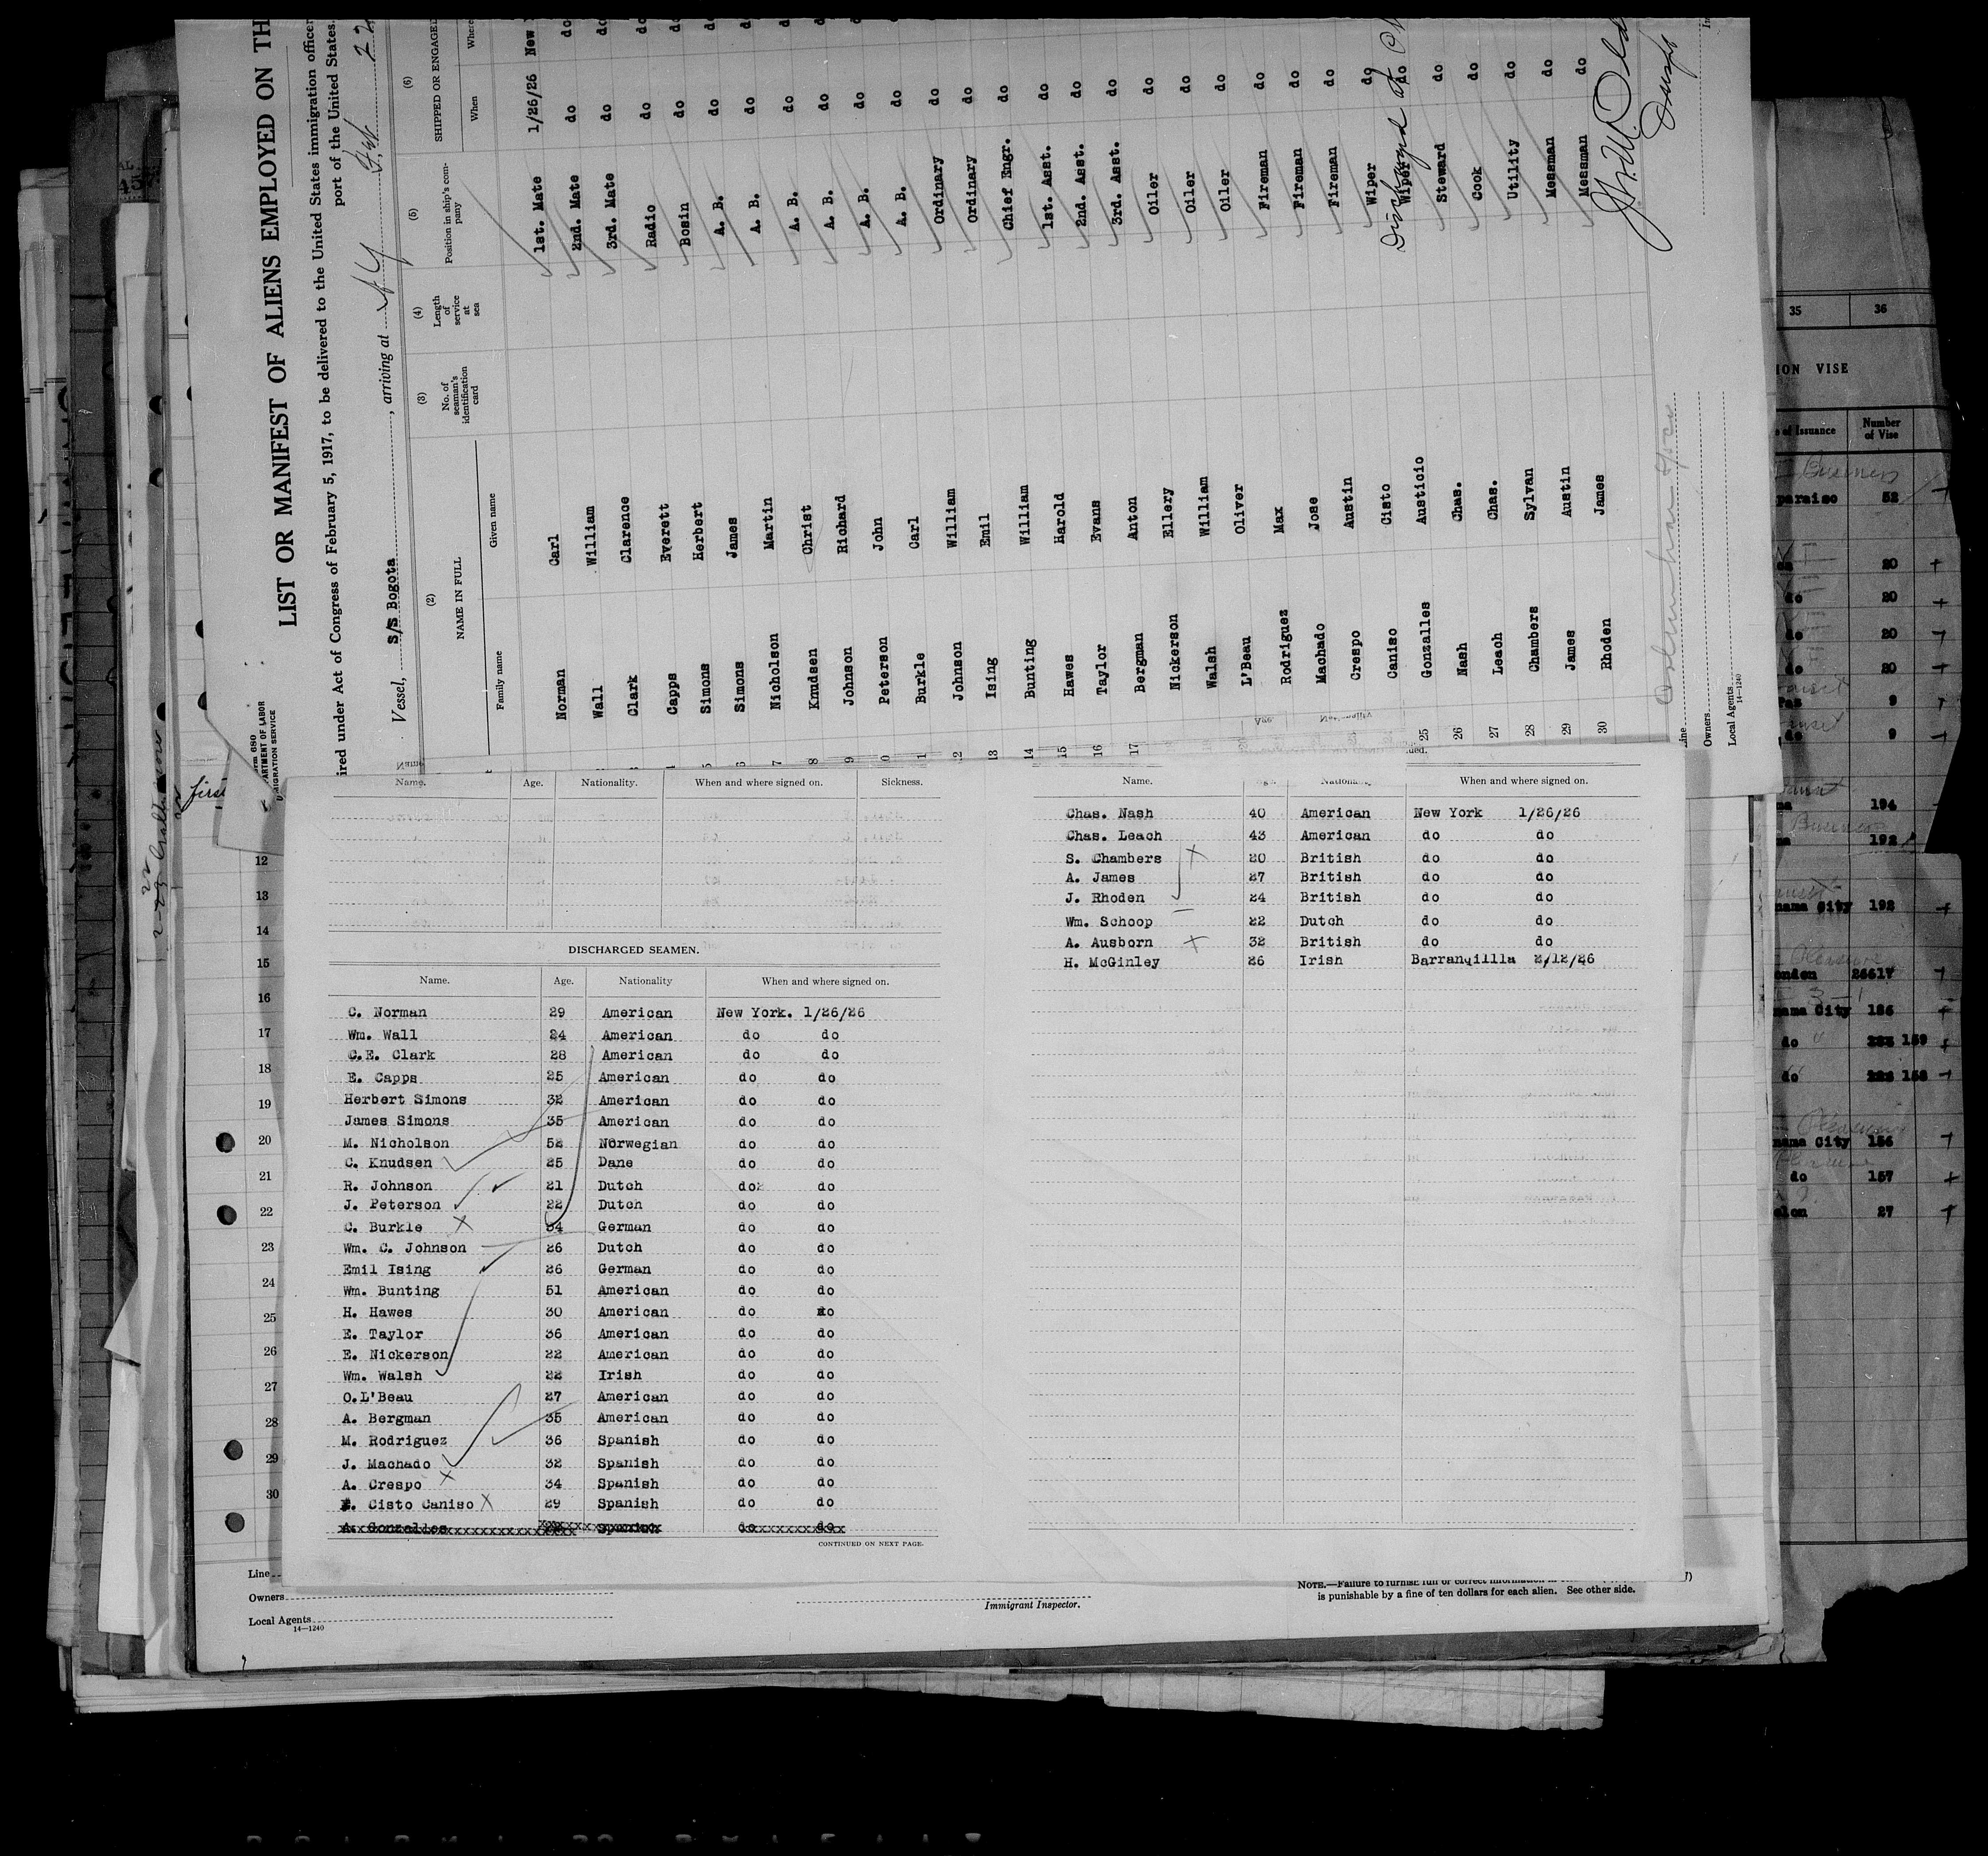 LIST OR MANIFEST OF ALIENS EMPLOYED ON TH
ired under Act of Congress of February 5, 1917, to be delivered to the United States immigration officer
port of the United States.
Vessel, S/S Bogota, arriving at N Y Feb 22
PARTMENT OF LABOR
IMMIGRATION SERVICE
(2) (3) (4) (5) (6)
NAME IN FULL No. of seaman's identification card Length of service at sea Position in ship's company SHIPPED OR ENGAGED
Family name Given name When Where
Norman Carl 1st. Mate 1/26/26 New
Wall William 2nd. Mate do do
Clark Clarence 3rd. Mate do do
Capps Everett Radio do do
Simons Herbert Bosin do do
Simons James A. B. do do
Nicholson Martin A. B. do do
Knudsen Christ A. B. do do
Johnson Richard A. B. do do
Peterson John A. B. do do
Burkle Carl A. B. do do
12 Johnson William Ordinary do
13 Ising Emil Ordinary do
14 Bunting William Chief Engr. do
15 Hawes Harold 1st. Asst. do
16 Taylor Evans 2nd. Asst. do
17 Bergman Anton 3rd. Asst. do
Nickerson Ellery Oiler do
Walsh William Oiler do
L'Beau Oliver Oiler do
Rodriguez Max Fireman do
Machado Jose Fireman do
Crespo Austin Fireman do
Caniso Cisto Wiper do
25 Gonzalles Austicio Wiper do
Discharged at
26 Nash Chas. Steward do
27 Leach Chas. Cook do
28 Chambers Sylvan Utility do
29 James Austin Messman do
30 Rhoden James Messman do
Owners
Local Agents
14—1240
Name. Age. Nationality. When and where signed on. Sickness.
DISCHARGED SEAMEN.
Name. Age. Nationality When and where signed on.
C. Norman 29 American New York. 1/26/26
Wm. Wall 24 American do do
C.E. Clark 28 American do do
E. Capps 25 American do do
Herbert Simons 32 American do do
James Simons 35 American do do
M. Nicholson 52 Norwegian do do
C. Knudsen 25 Dane do do
R. Johnson 21 Dutch do do
J. Peterson 22 Dutch do do
C. Burkle 34 German do do
Wm. C. Johnson 26 Dutch do do
Emil Ising 26 German do do
Wm. Bunting 51 American do do
H. Hawes 30 American do do
E. Taylor 36 American do do
E. Nickerson 22 American do do
Wm. Walsh 22 Irish do do
O.L'Beau 27 American do do
A. Bergman 35 American do do
M. Rodriguez 36 Spanish do do
J. Machado 32 Spanish do do
A. Crespo 34 Spanish do do
Cisto Caniso 29 Spanish do do
A. Gonzalles Spanish do do
CONTINUED ON NEXT PAGE.
Name. Nationality When and where signed on.
Chas. Nash 40 American New York 1/26/26
Chas. Leach 43 American do do
S. Chambers 20 British do do
A. James 27 British do do
J. Rhoden 24 British do do
Wm. Schoop 22 Dutch do do
A. Ausborn 32 British do do
H. McGinley 26 Irish Barranqillla 2/12/26
12
13
14
15
16
17
18
19
20
21
22
23
24
25
26
27
28
29
30
Line
Owners
Local Agents
14—1240
Immigrant Inspector.
NOTE.—Failure to furnish full or correct information
is punishable by a fine of ten dollars for each alien. See other side.
35 36
ION VISE
of Issuance Number of Vise
Business
paraiso 52
20
do 20
do 20
do 20
9
do 9
194
Business
192
nama City 192
26617
nama City 186
do 159
do 158
nama City 156
do 157
27